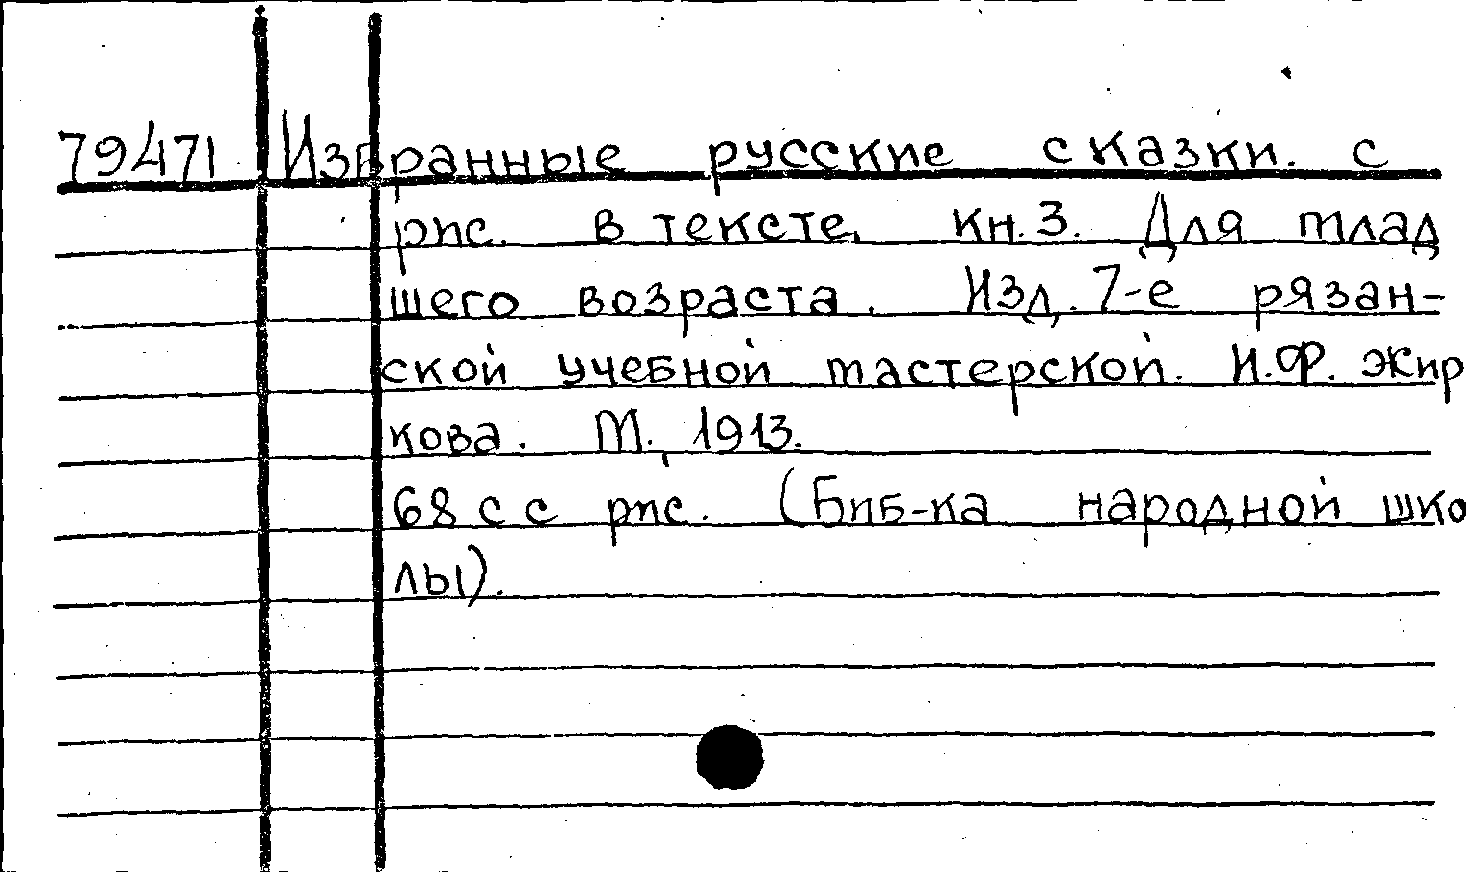 79471 Избранные русские сказки. с
рис. в тексте, кн. 3. Для млад
шего возраста. Изд. 7-е рязан-
ской учебной мастерской. И.Ф. Жир
кова. М., 1913.
68 с с рис. (Биб-ка народной шко
лы).